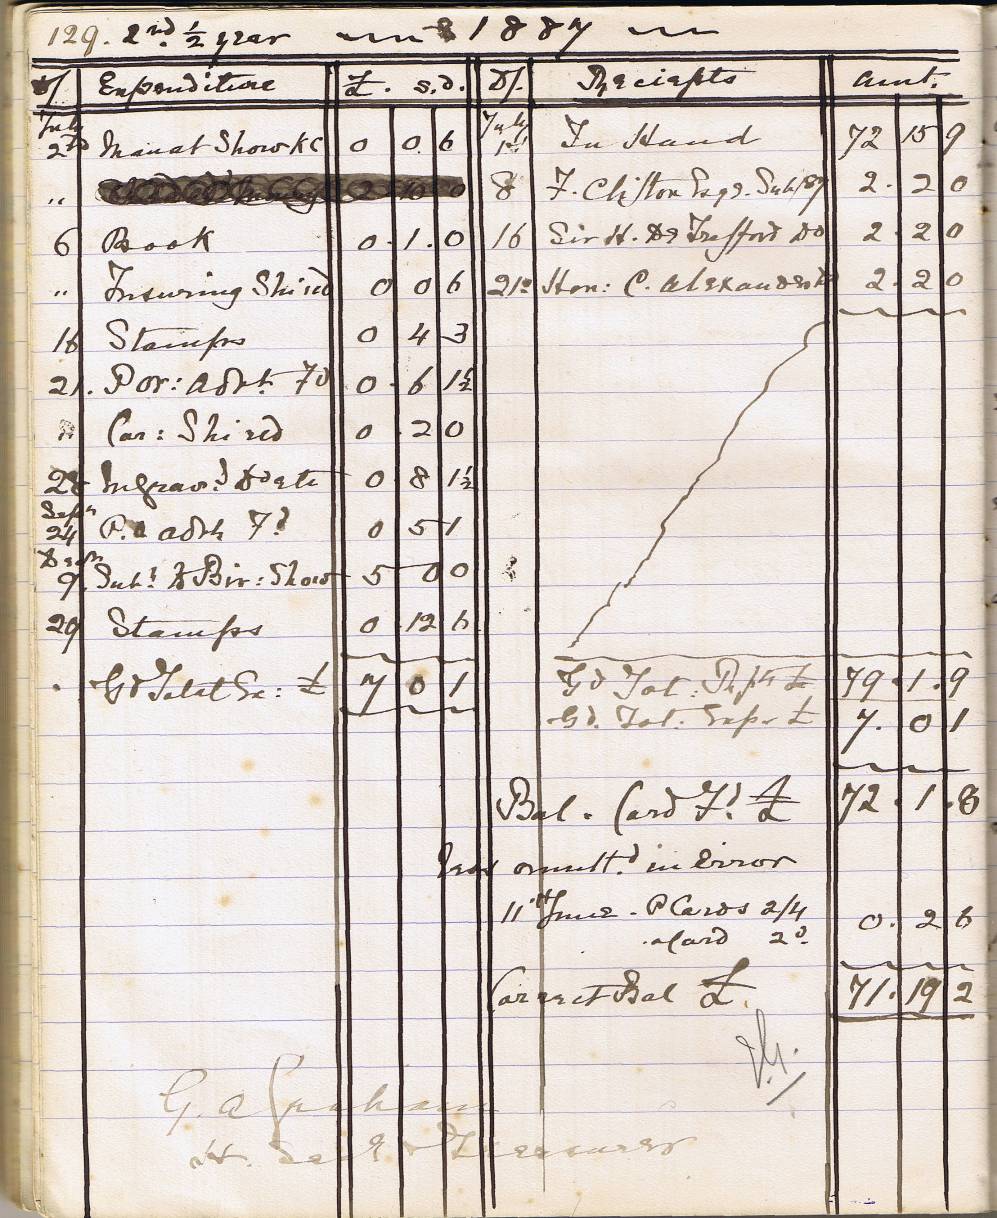 129. 2nd ½ year 1887
D/ Expenditure £. s. d. D/. Receipts Amt.
July 2nd Manat Show KC 0 0 6 July 1st In Hand 72 15 9
„ 2 10 0 8 F. Clifton Esqr. Sub/87 2. 2 0
6 Book 0. 1. 0 16 Sir H. De Trafford Do 2 2 0
„ Insuring Shield 0 0 6 21st Hon: C. Alexander Do 2. 2 0
16 Stamps 0 4 3
21. Por: Advt. Fd 0 6 1½
„ Car: Shield 0 2 0
28 Ingrav.d Do &tc 0 8 1½
Sepr 24 P.a advt Fd 0 5 1
Decr 9. Sub.d to Bir: Show 5 0 0
29 Stamps 0 12 6
Gd Total Ex: £ 7 0 1 Gd Tot: Rpts £ 79. 1. 9
Gd. Tot. Expr £ 7. 0 1
Bal. Card Fd. £ 72. 1. 8
less omitt.d in Error
11th June. P Cards 2/4
a Card 2d. 0. 2 6
Correct Bal £. 71. 19 2
G. A Graham
H. Sec & Treasurer